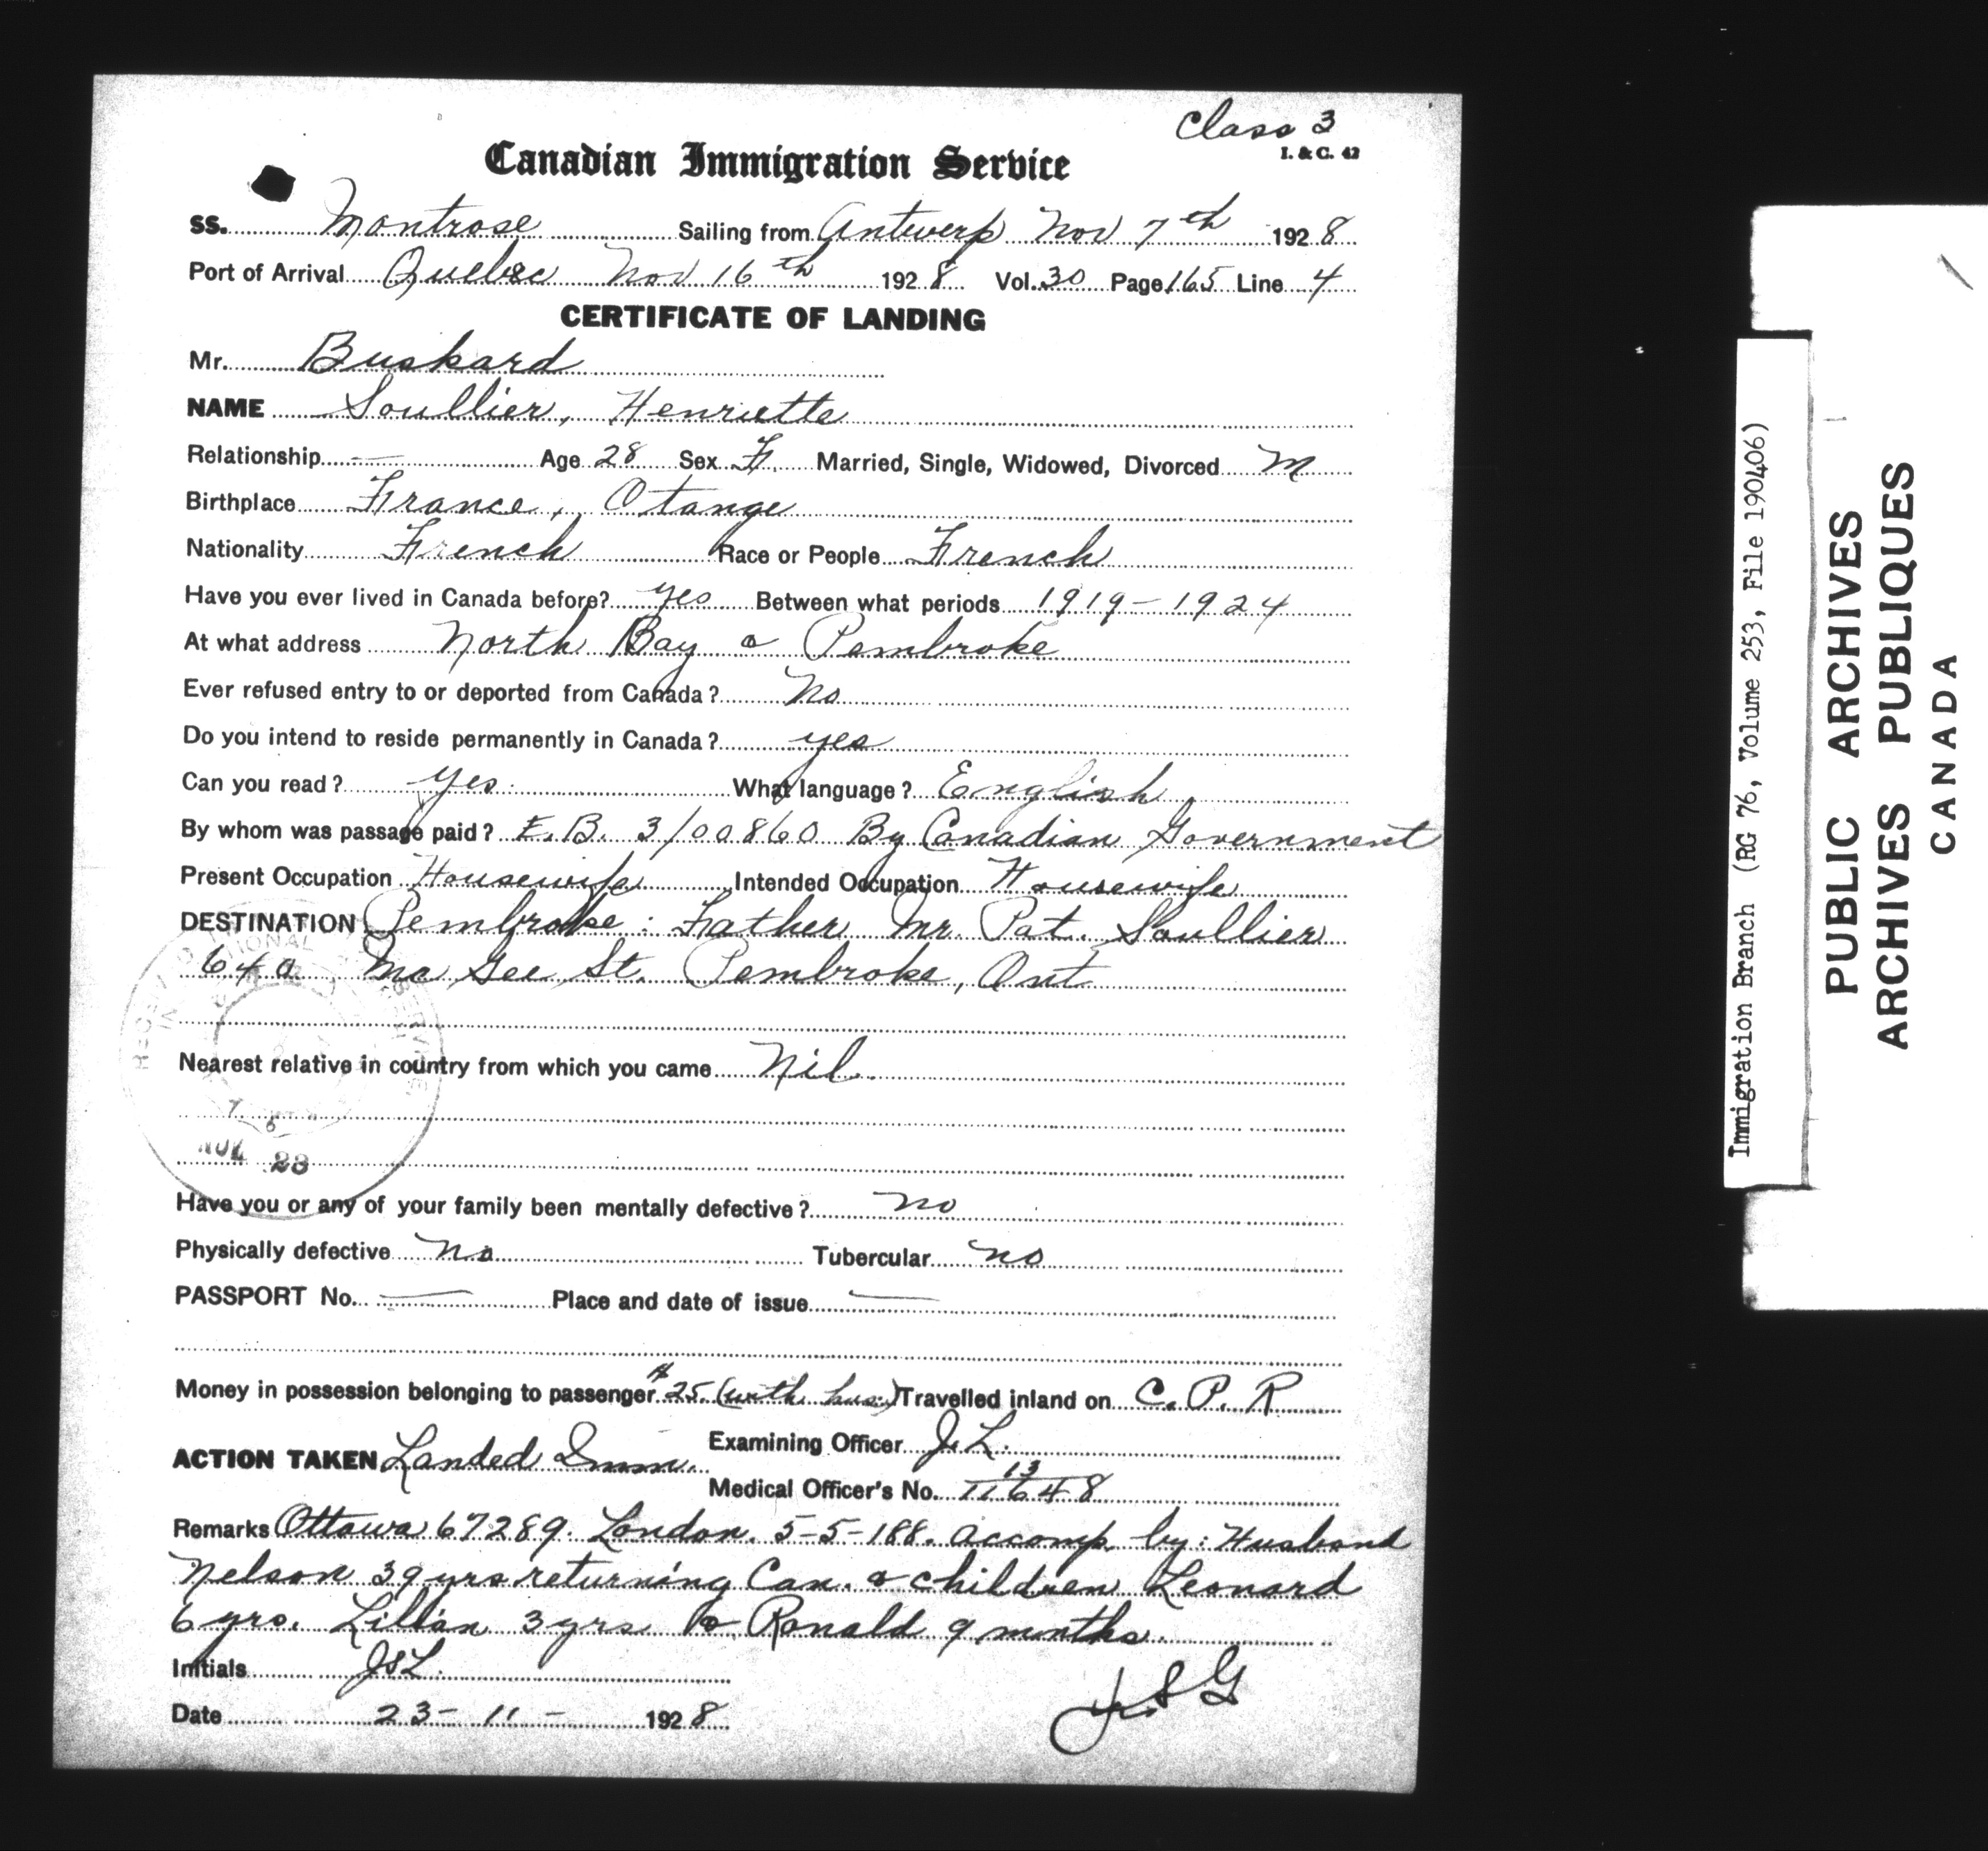 Class 3
I. & C. 42
Canadian Immigration Service
SS. Montrose Sailing from Antwerp Nov 7th 1928
Port of Arrival Quebec Nov 16th 1928 Vol. 30 Page 165 Line 4
CERTIFICATE OF LANDING
Mr. Buskard
NAME Soullier, Henriette
Relationship — Age 28 Sex F. Married, Single, Widowed, Divorced M
Birthplace France, Otange
Nationality French Race or People French
Have you ever lived in Canada before? yes Between what periods 1919-1924
At what address North Bay & Pembroke
Ever refused entry to or deported from Canada? No
Do you intend to reside permanently in Canada? yes
Can you read? yes What language? English
By whom was passage paid? E.B. 3/00860 By Canadian Government
Present Occupation Housewife Intended Occupation Housewife
DESTINATION Pembroke: Father Mr. Pat. Soullier
640 Mc Gee St. Pembroke, Ont
Nearest relative in country from which you came Nil.
Have you or any of your family been mentally defective? no
Physically defective no Tubercular no
PASSPORT No. — Place and date of issue —
Money in possession belonging to passenger $25. (with hus.) Travelled inland on C. P. R
ACTION TAKEN Landed Imm. Examining Officer J. L.
Medical Officer's No. 13 11648
Remarks Ottawa 67289. London. 5-5-188. accomp. by: Husband
Nelson 39 yrs returning Can. & children Leonard
6 yrs. Lillian 3 yrs & Ronald 9 months.
Initials JSL.
Date 23-11-1928
JSG
Immigration Branch (RG 76, Volume 253, File 190406)
PUBLIC ARCHIVES
ARCHIVES PUBLIQUES
CANADA